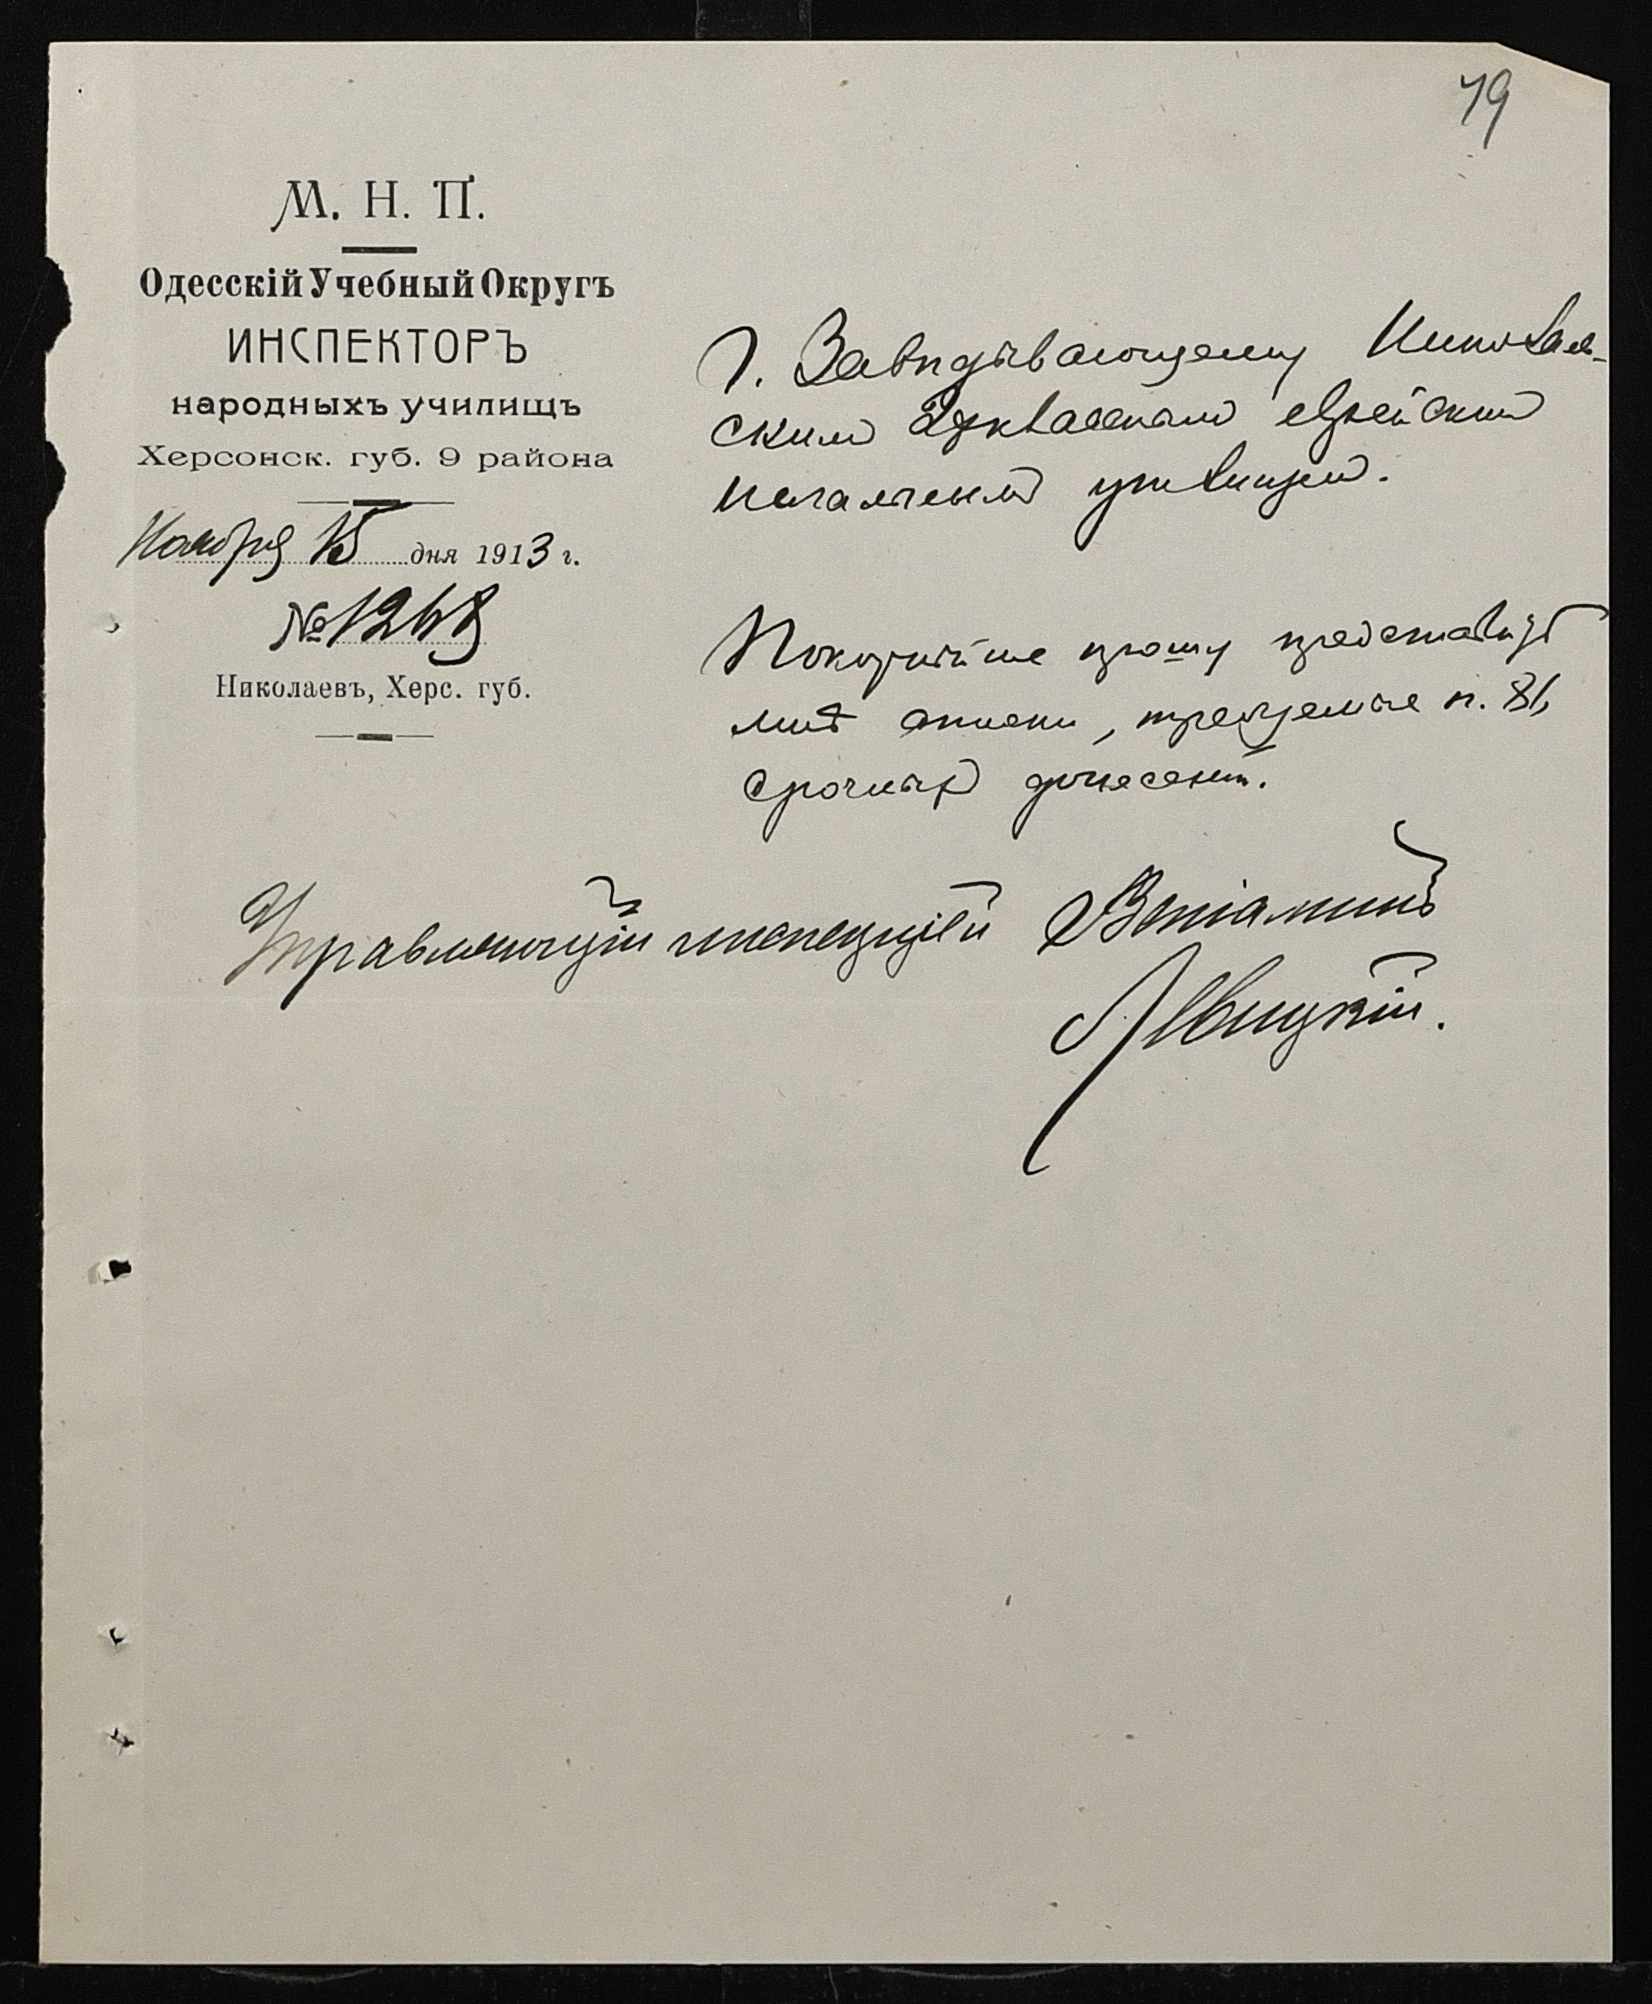 79
М. Н. П.
Одесскій Учебный Округъ
ИНСПЕКТОРЪ
народныхъ училищъ
Херсонск. губ. 9 района
Ноября 15 дня 1913 г.
№ 1269
Николаевъ, Херс. губ.
Г. Завѣдывающему Николаев-
скимъ 2хкласснымъ еврейскимъ
начальнымъ училищемъ.
Покорнѣйше прошу представить
мнѣ списки, требуемые п. 81,
срочныхъ донесеній.
Управляющій инспекціей Веніаминъ
Левицкій.